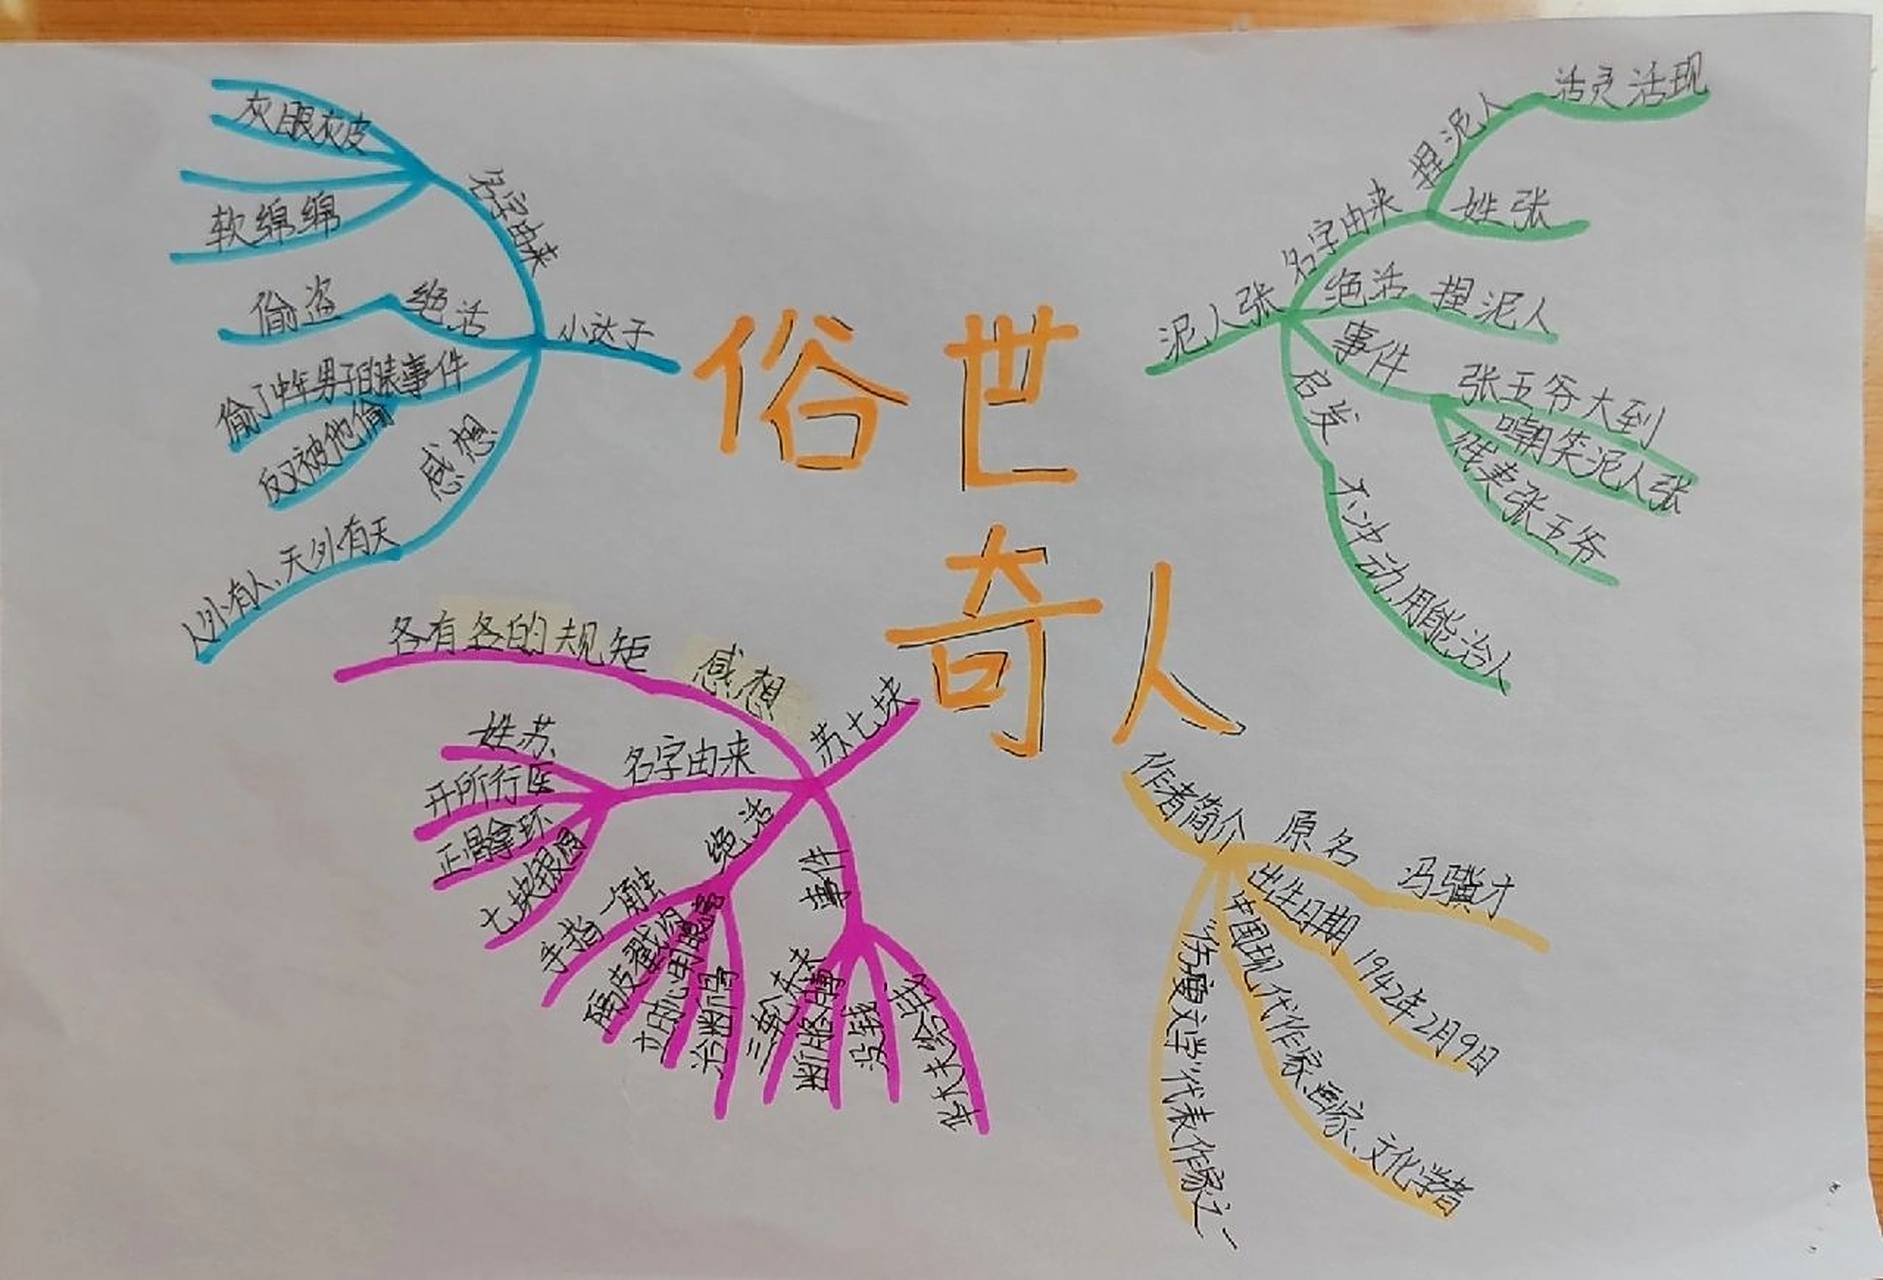 俗世
奇人
小达子
名字由来
灰眼灰皮
软绵绵
绝活
偷盗
事件
偷了中年男子的表
反又被他偷
感想
人外有人、天外有天
泥人张
名字由来
捏泥人
活灵活现
姓张
绝活
捏泥人
事件
张五爷大到
嘲笑泥人张
贱卖张五爷
启发
不冲动,用能治人
苏七块
感想
各有各的规矩
名字由来
姓苏
开所行医
正骨拿环
七块银圆
绝活
手指一触
隔皮戳肉
治断骨
事件
没钱
华大夫给让
作者简介
原名
冯骥才
出生日期
1942年2月9日
中国现代作家、画家、文化学者
"伤痕文学"代表作家之一